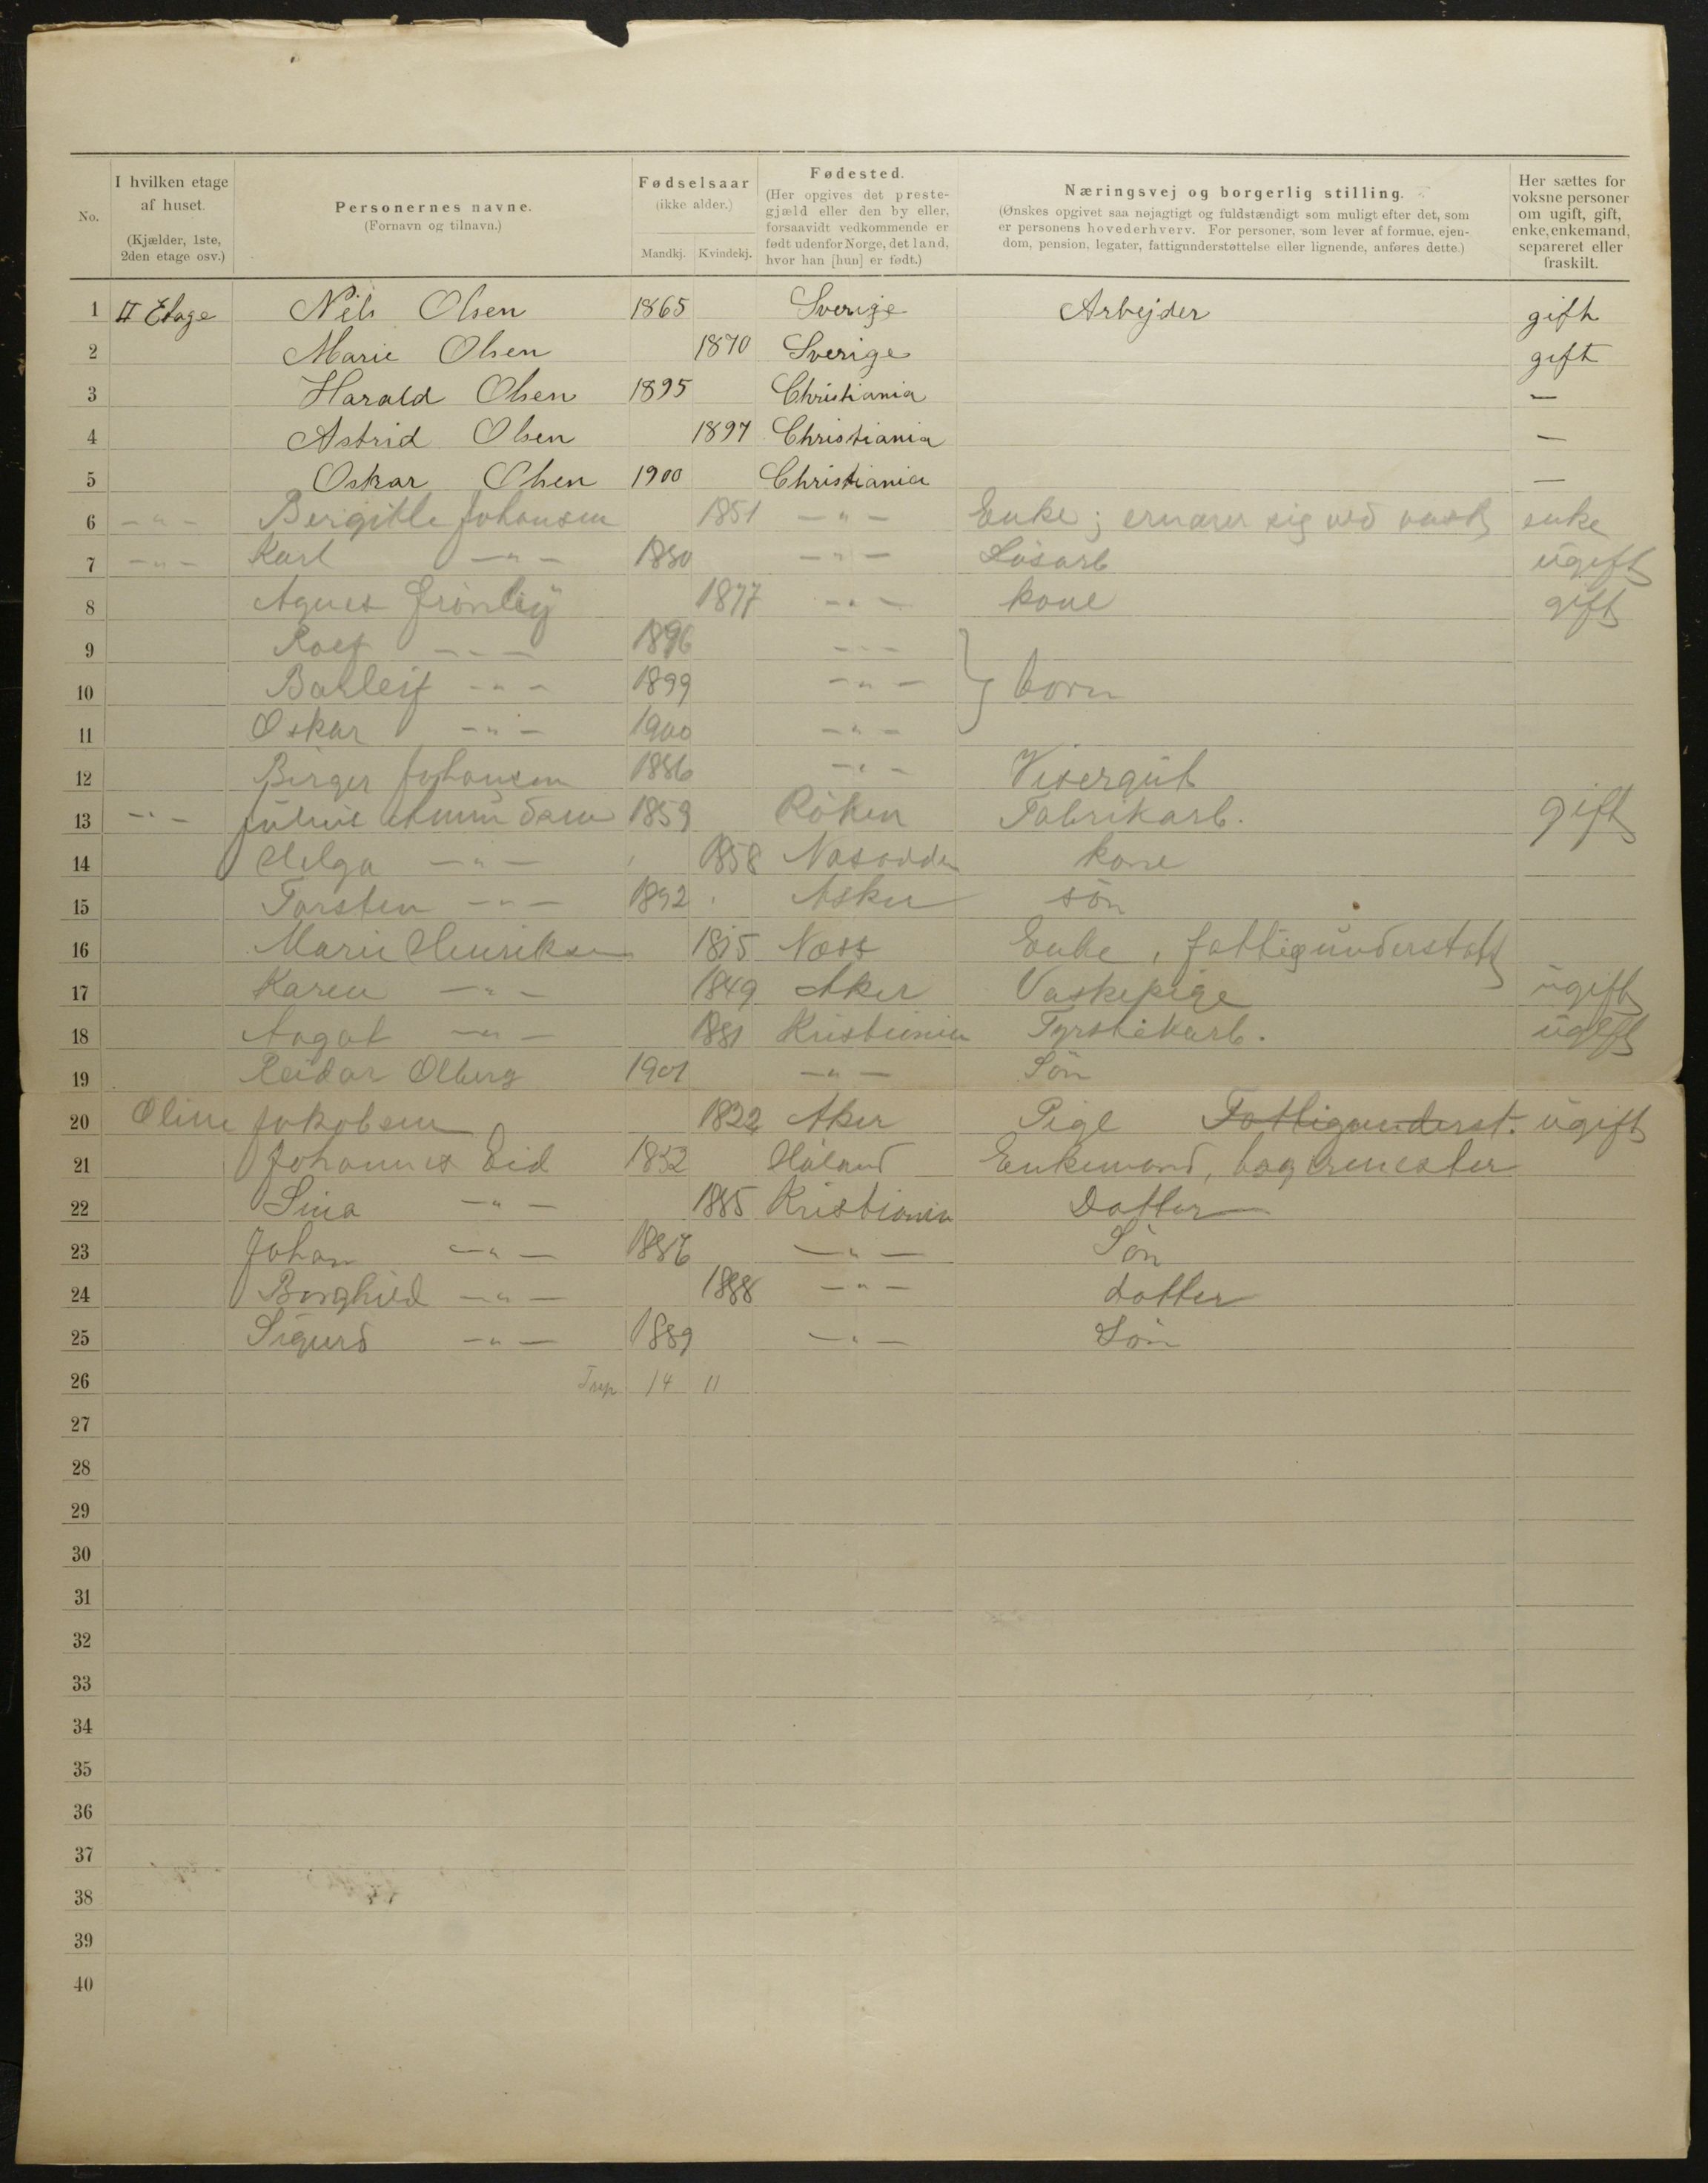 No.
I hvilken etage af huset. (Kjælder, 1ste, 2den etage osv.)
Personernes navne. (Fornavn og tilnavn.)
Fødselsaar (ikke alder.) Mandkj. Kvindekj.
Fødested. (Her opgives det prestegjæld eller den by eller, forsaavidt vedkommende er født udenfor Norge, det land, hvor han [hun] er født.)
Næringsvej og borgerlig stilling. (Ønskes opgivet saa nøjagtigt og fuldstændigt som muligt efter det, som er personens hovederhverv. For personer, som lever af formue, ejendom, pension, legater, fattigunderstøttelse eller lignende, anføres dette.)
Her sættes for voksne personer om ugift, gift, enke, enkemand, separeret eller fraskilt.
1 II Etage Nils Olsen 1865 Sverige Arbejder gift
2 Marie Olsen 1870 Sverige gift
3 Harald Olsen 1895 Christiania —
4 Astrid Olsen 1897 Christiania —
5 Oskar Olsen 1900 Christiania —
6 -"- Bergitte Johansen 1851 -"- Enke; ernærer sig ved vask enke
7 -"- Karl -"- 1880 -"- Løsarb ugift
8 Agnes Grönly 1877 -"- kone gift
9 Rolf -"- 1896 -"-
10 -"- 1899 -"- } børn
11 Oskar -"- 1900 -"-
12 Birger Johansen 1886 -"- Visergut
13 -"- Julius Amundsen 1859 Röken Fabrikarb. gift
14 Helga -"- 1858 Nasodden kone
15 Torsten -"- 1892 Asker sön
16 Marie Henriksen 1815 Næss Enke, fattigunderstøtt
17 Karen -"- 1849 Aker Vaskepige ugift
18 Aagot -"- 1881 Kristiania Fyrstikarb. ugift
19 Reidar Olberg 1901 -"- Sön
20 Oline Jakobsen 1822 Aker Pige Fattigunderst. ugift
21 Johannes Eid 1852 Enkemand, bagermester
22 Sina -"- 1885 Kristiania Datter
23 Johan -"- 1886 -"- Sön
24 Borghild -"- 1888 -"- datter
25 Sigurd -"- 1889 -"- Sön
26 14 11
27
28
29
30
31
32
33
34
35
36
37
38
39
40